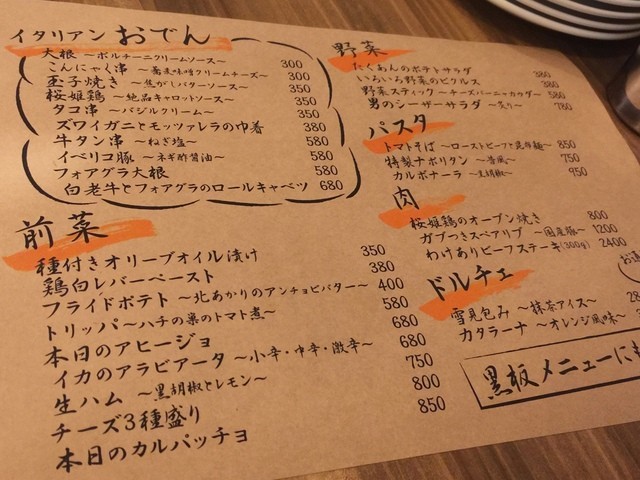 イタリアン おでん
大根 ～ポルチーニクリームソース～ 300
こんにゃく串 ～蕎麦味噌クリームチーズ～ 300
玉子焼き ～焦がしバターソース～ 350
桜姫鶏 ～絶品キャロットソース～ 350
タコ串 ～バジルクリーム～ 350
ズワイガニとモッツァレラの巾着 380
牛タン串 ～ねぎ塩～ 580
イベリコ豚 ～ネギ酢醤油～ 580
フォアグラ大根 580
白老牛とフォアグラのロールキャベツ 680
前菜
種付きオリーブオイル漬け 350
鶏白レバーペースト 380
フライドポテト ～北あかりのアンチョビバター～ 400
トリッパ ～ハチの巣のトマト煮～ 580
本日のアヒージョ 680
イカのアラビアータ ～小辛・中辛・激辛～ 680
生ハム ～黒胡椒とレモン～ 750
チーズ3種盛り 800
本日のカルパッチョ 850
野菜
たくあんのポテトサラダ 380
いろいろ野菜のピクルス 380
野菜スティック ～チーズバーニャカウダ～ 580
男のシーザーサラダ ～炙り～ 780
パスタ
トマトそば ～ローストビーフと昆布麺～ 850
特製ナポリタン ～昔風～ 750
カルボナーラ ～黒胡椒～ 950
肉
桜姫鶏のオーブン焼き 800
ガブっつきスペアリブ ～国産豚～ 1200
わけありビーフステーキ(300g) 2400
ドルチェ
雪見包み ～抹茶アイス～ 28
カタラーナ ～オレンジ風味～ 3
黒板メニューにも